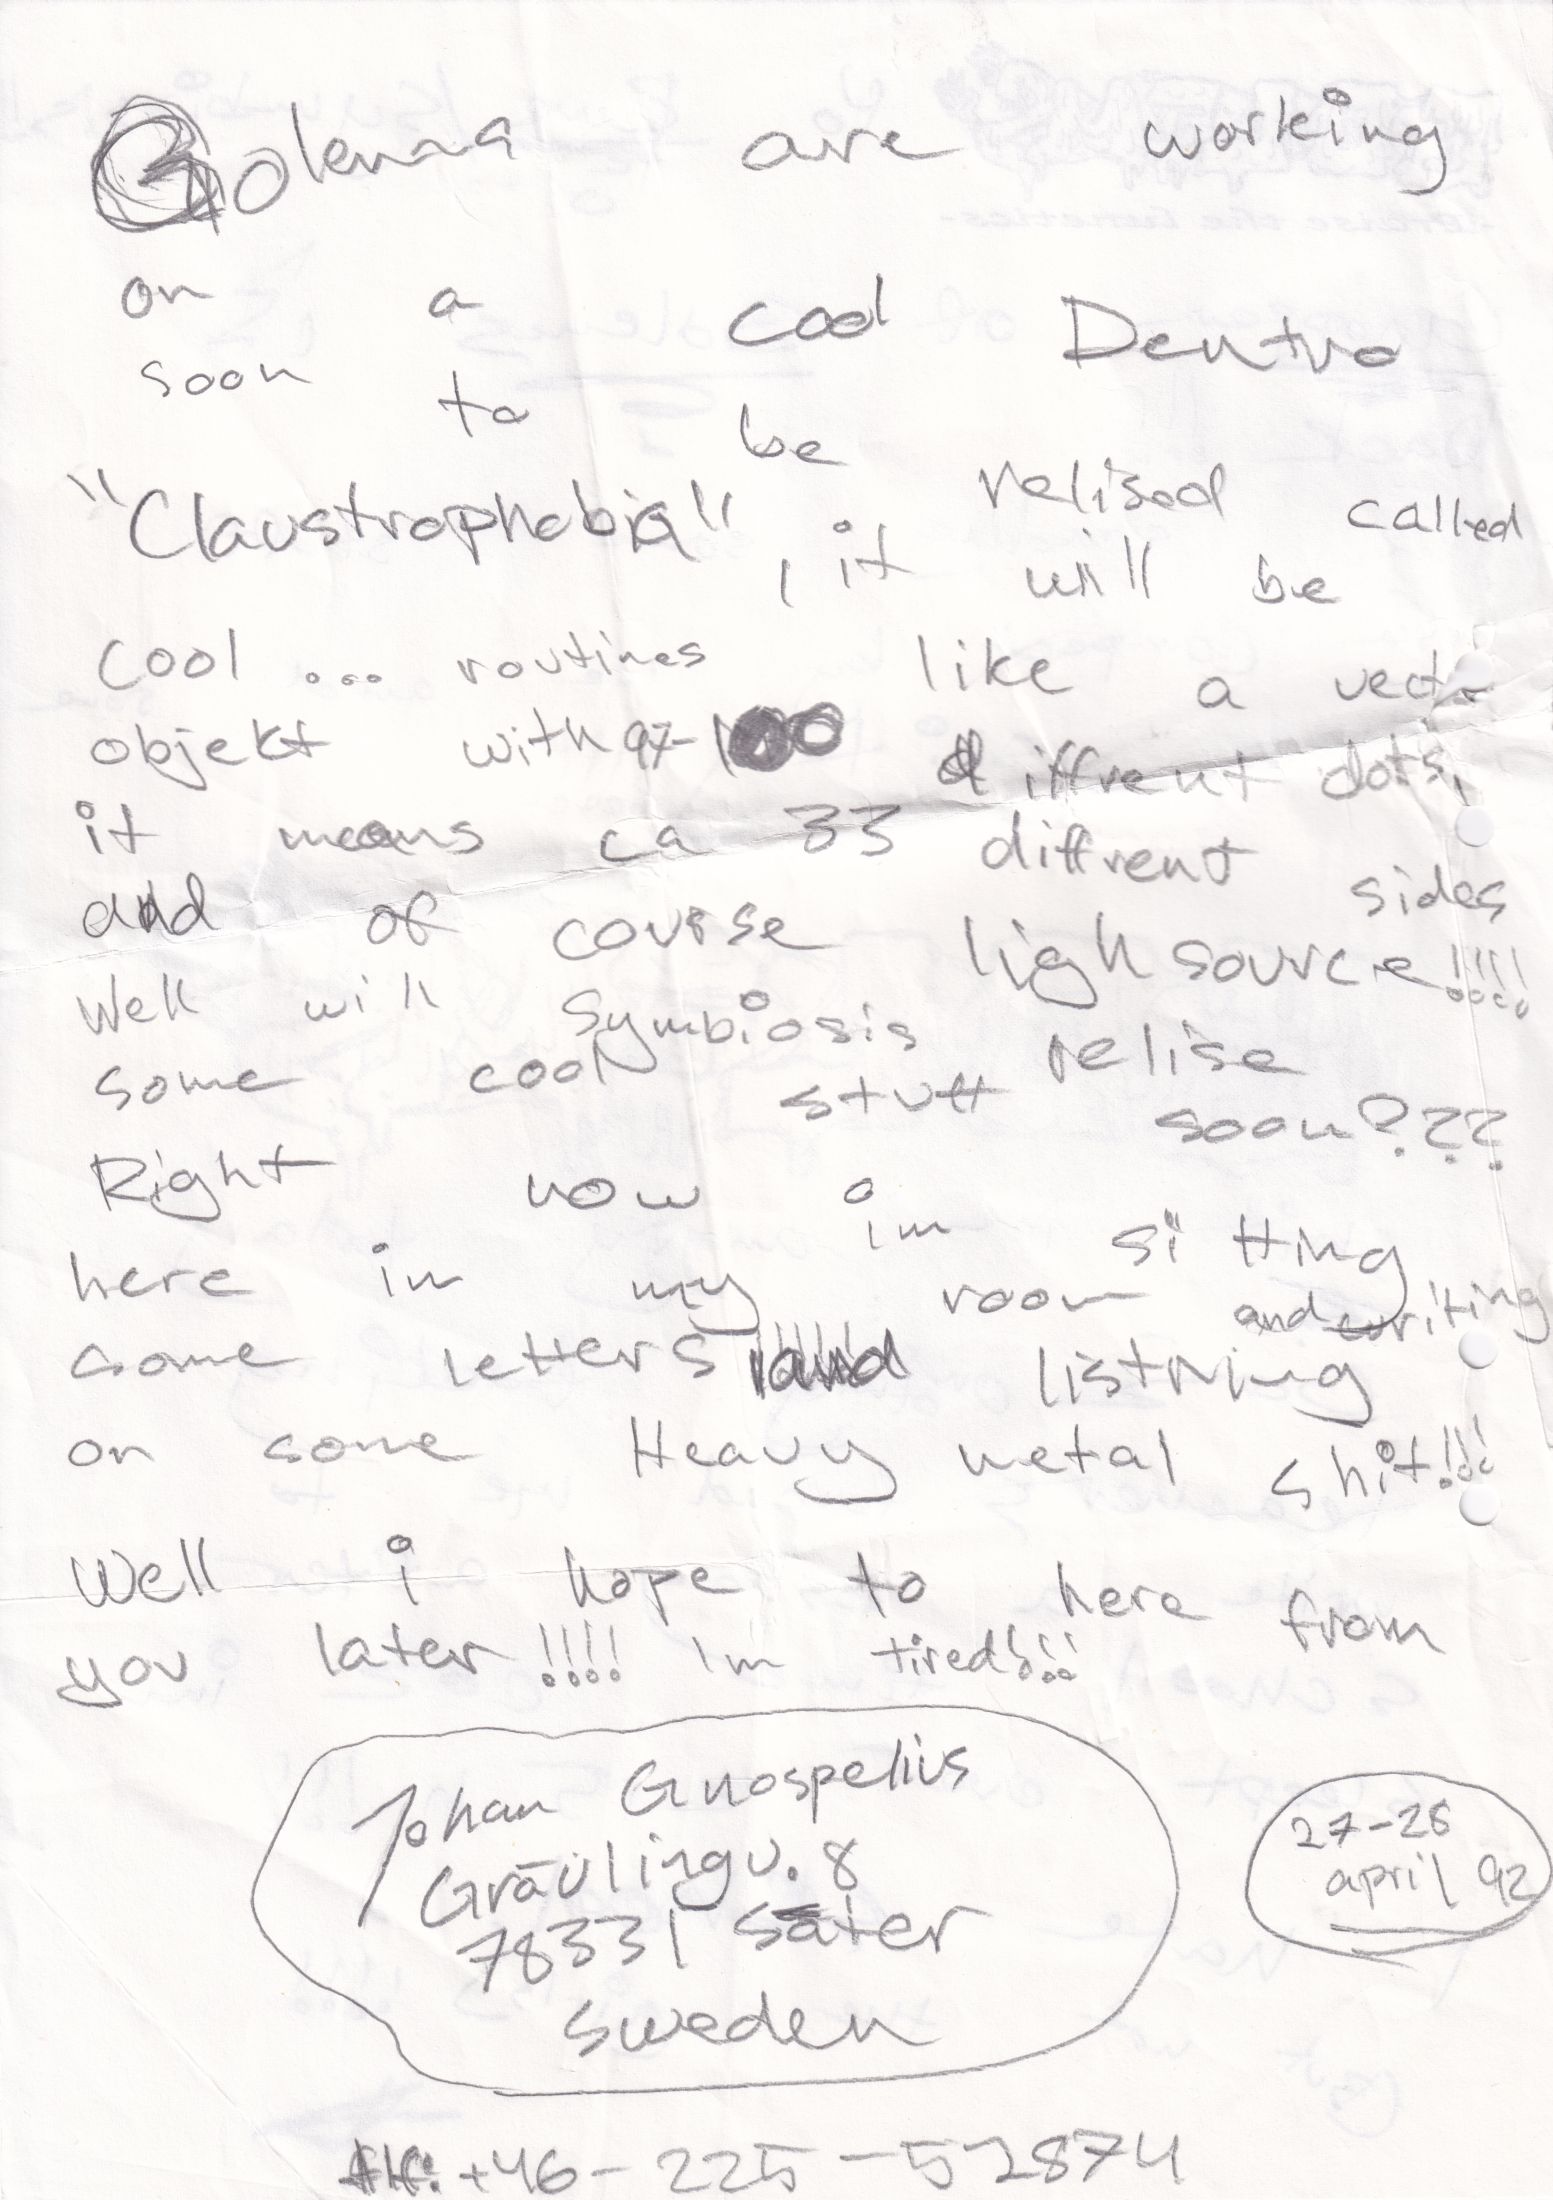 Golems are working
on a cool Dentro
soon to be relised called
"Claustrophobia", it will be
cool ... routines like a vector
objekt with 97-100 diffrent dots,
it means ca 33 diffrent sides
and of course lighsource!!!!
Well will Symbiosis relise
some cool stuff soon???
Right now im sitting
here in my room and writing
some letters and listning
on some Heavy metal shit!!!
Well i hope to here from
you later!!!! I'm tired!!!
Johan Gnospelius
Grävlingv. 8
78331 Säter
Sweden
27-28
april 92
tlf: +46-225-52874